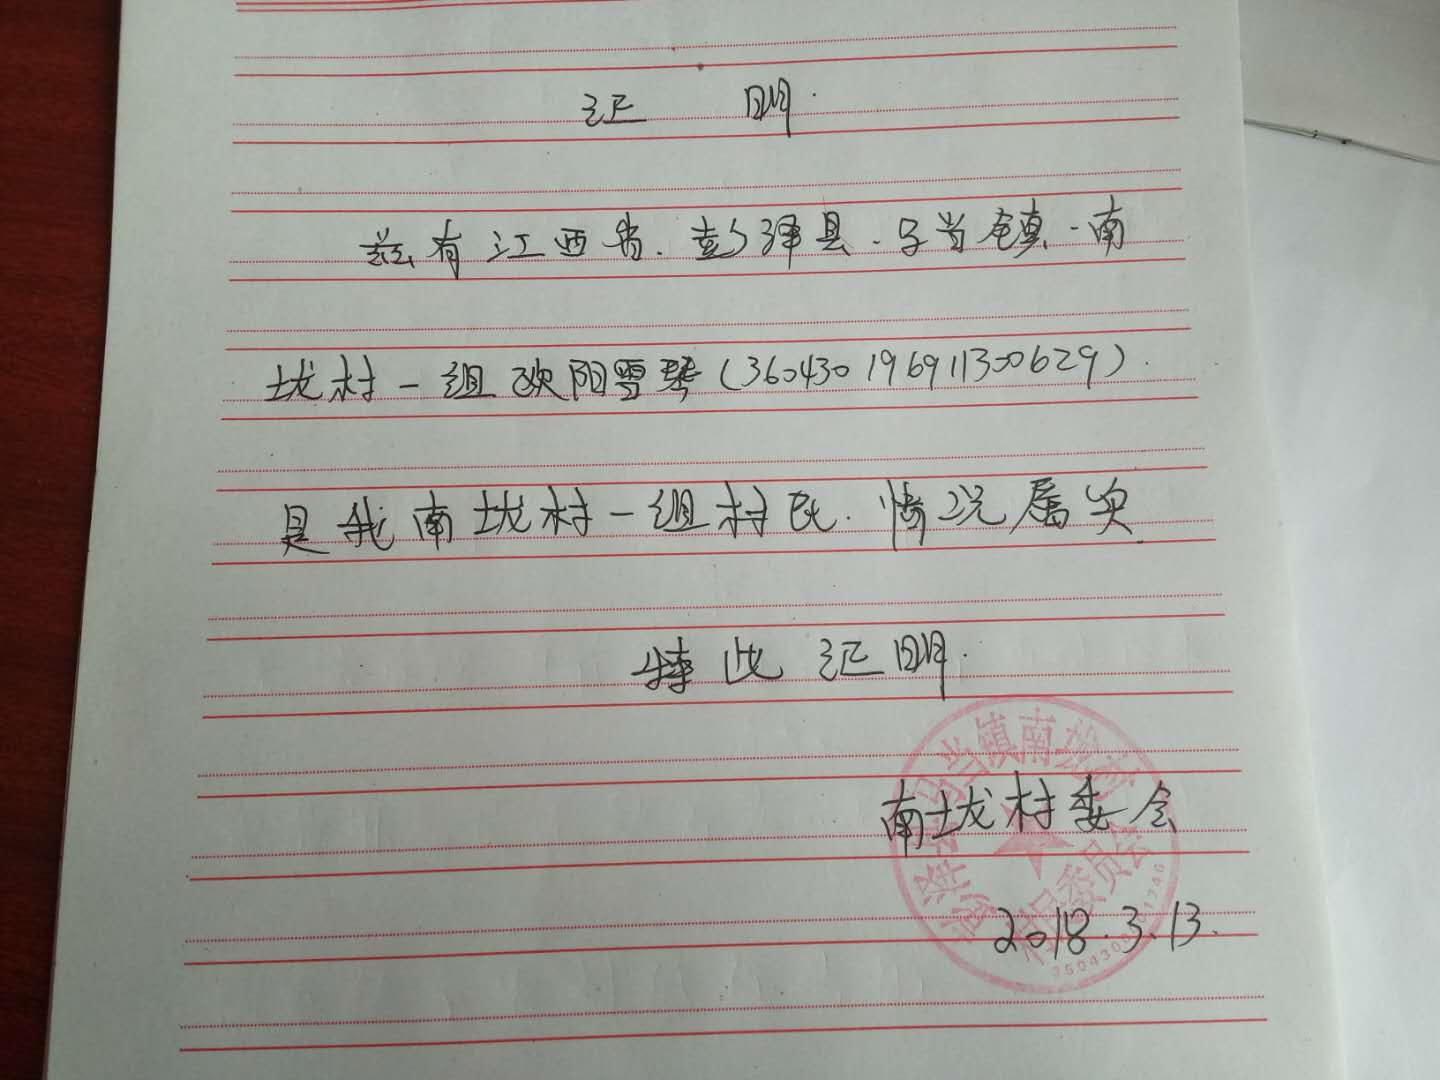 证 明.
兹有江西省.彭泽县.马当镇.南
垅村一组欧阳雪琴(360430196911300629).
是我南垅村一组村民.情况属实.
特此证明.
南垅村委会
2018.3.13.
彭泽县马当镇南垅村
村民委员会